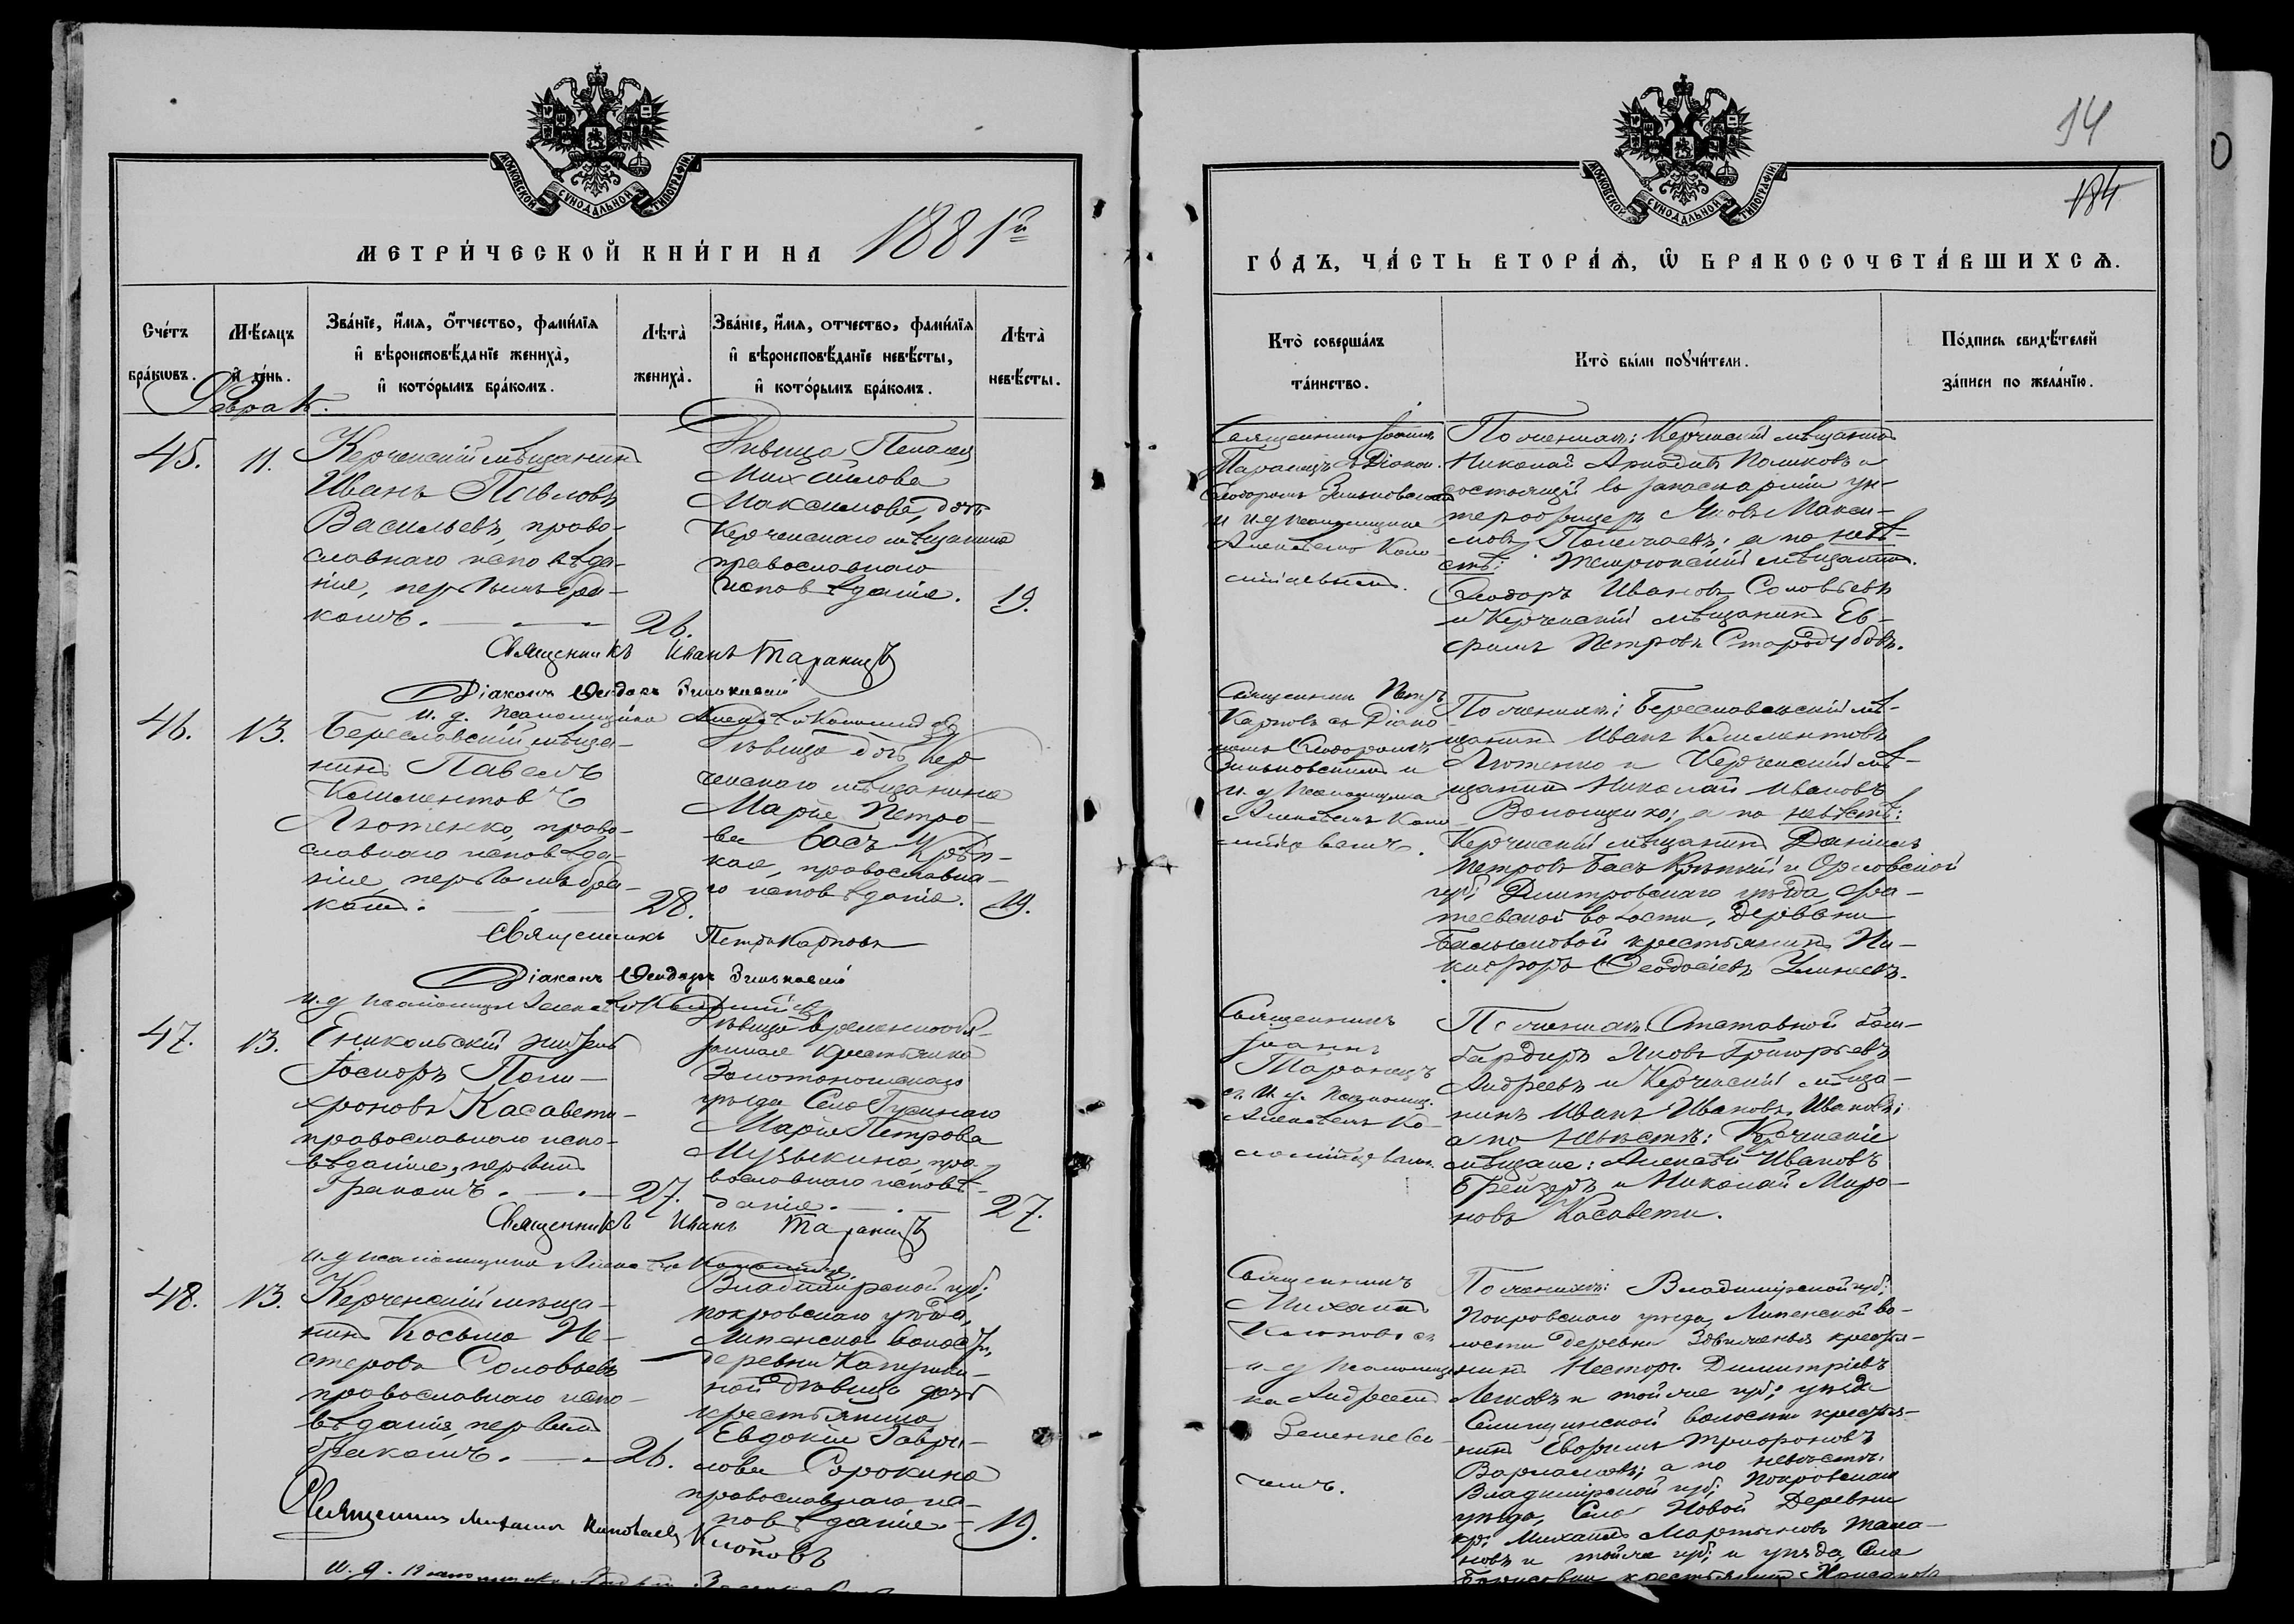 МОСКОВСКОЙ СУНОДАЛЬНОЙ ТИПОГРАФІИ
МЕТРИ́ЧЕСКОЙ КНИ́ГИ НА 1881й
Сче́тъ бра́кωвъ.
Мѣ́сяцъ и҆ де́нь.
Зва́нїе, и҆́мѧ, ѻ҆́тчество, фами́лїѧ
и҆ вѣроисповѣ́данїе жениха̀,
и҆ кото́рымъ бра́комъ.
Лѣ́та̀
жениха̀.
Зва́нїе, и҆́мѧ, отчество, фами́лїѧ
и҆ вѣроисповѣ́данїе невѣ́сты,
и҆ кото́рымъ бра́комъ.
Лѣ́та̀
невѣ́сты.
Февраль.
45.
11.
Керченскій мѣщанинъ
Иванъ Павловъ
Васильевъ, право-
славнаго исповѣда-
нія, первымъ бра-
комъ.
26.
Дѣвица Пелагея
Михайлова
Максимова, дочь
Керченскаго мѣщанина
православнаго
исповѣданія.
19.
Священникъ Иванъ Таранецъ
Діаконъ Ѳеодоръ Зиньковскій
и. д. псаломщика
46.
13.
Береславскій мѣща-
нинъ Павелъ
Климентовъ
Лютенко, право-
славнаго исповѣда-
нія, первымъ бра-
комъ.
28.
Дѣвица дочь Кер-
ченскаго мѣщанина
Марія Петро-
ва Басъ-Крѣп-
кая, православна-
го исповѣданія.
19.
Священникъ Петръ Карповъ
Діаконъ Ѳеодоръ Зиньковскій
и. д. псаломщика
47.
13.
Еникольскій житель
Іосифъ Поли-
хроновъ Касавети
православнаго испо-
вѣданія, первымъ
бракомъ.
27.
Дѣвица временнообя-
занная крестьянка
Золотоношскаго
уѣзда Села
Марія Петрова
Музыкина, пра-
вославнаго исповѣ-
данія.
27.
Священникъ Иванъ Таранецъ
и. д. псаломщика
48.
13.
Керченскій мѣща-
нинъ Косьма Не-
стеровъ Соловьевъ
православнаго испо-
вѣданія, первымъ
бракомъ.
26.
Владимірской губ:
покровскаго уѣзда,
Липенской волости,
деревни
дѣвица дочь
крестьянина
Евдокія Гаври-
лова Сорокина
православнаго ис-
повѣданія.
19.
Священникъ Михаилъ
Клоповъ
и. д. псаломщика
14
184
МОСКОВСКОЙ СУНОДАЛЬНОЙ ТИПОГРАФІИ
ГО́ДЪ, ЧА́СТЬ ВТОРА́Ѧ, Ѡ҆ БРАКОСОЧЕТА́ВШИХСѦ.
Кто̀ соверша́лъ
та́инство.
Кто̀ бы́ли поꙋчи́тели.
По́дпись свидѣ́телей
за́писи по жела́нїю.
Священникъ Іоаннъ
Таранецъ съ Діакон.
Ѳеодоромъ Зиньковскимъ
и и. д. псаломщика
Алексѣемъ Коло-
мійцевымъ.
По женихѣ: Керченскій мѣщанинъ
Николай Поляковъ и
состоящій въ запасѣ арміи ун-
теръ офицеръ Яковъ Макси-
мовъ; а по невѣ-
стѣ: Темрюкскій мѣщанинъ
Ѳеодоръ Ивановъ Соловьевъ
и Керченскій мѣщанинъ Еѳ-
фимъ Петровъ Стародубовъ.
Священникъ Петръ
Карповъ съ Діако-
номъ Ѳеодоромъ
Зиньковскимъ и
и. д. псаломщика
Алексѣемъ Коло-
мійцевымъ.
По женихѣ: Береславскій мѣ-
щанинъ Иванъ Климентовъ
Лютенко и Керченскій мѣ-
щанинъ Николай Ивановъ
Волощенко; а по невѣстѣ:
Керченскій мѣщанинъ Даніилъ
Петровъ Басъ Крѣпкій и Орловской
губ: Дмитровскаго уѣзда,
волости, деревни
крестьянинъ Ни-
кифоръ Ѳеодосіевъ
Священникъ
Іоаннъ
Таранецъ
съ и. д. псаломщ.
Алексѣемъ Ко-
ломійцевымъ.
По женихѣ: Отставной бом-
бардиръ Яковъ Григорьевъ
Андреевъ и Керченскій мѣща-
нинъ Иванъ Ивановъ Ивановъ;
а по невѣстѣ: Керченскіе
мѣщане: Алексѣй Ивановъ
и Николай Миро-
новъ Касавети.
Священникъ
Михаилъ
Клоповъ съ
и. д. псаломщи-
ка Андреемъ
По женихѣ: Владимірской губ:
Покровскаго уѣзда, Липенской во-
лости деревни крестья-
нинъ Несторъ Димитріевъ
и той же губ: уѣзда
волости крестья-
нинъ Евфимъ Трифоновъ
а по невѣстѣ:
Владимірской губ: Покровскаго
уѣзда, Села Новой Деревни
кр: Михаилъ Мартыновъ
и той же губ: и уѣзда, Села
крестьянинъ